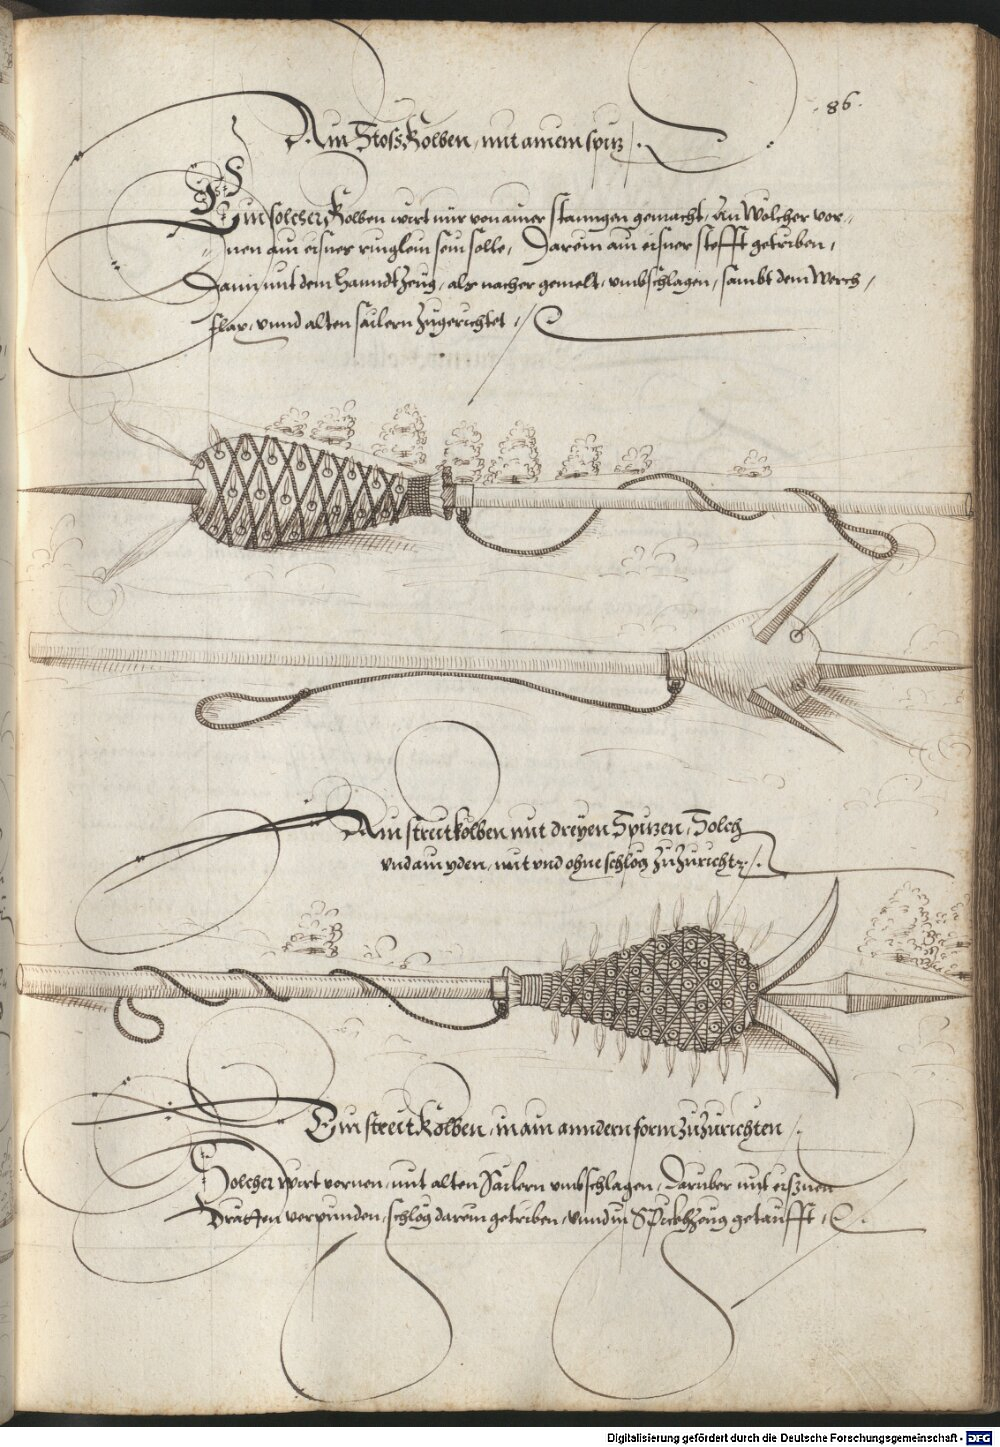 .86.
Ain StossKolben, mit ainem spitz /.
Ein solcher Kolben wirt nur von ainer stanngen gemacht, An Wölcher vor,,
nen ain eisnes ringlein sein solle, Darein ain eisner stefft getriben,
Dann mit dem Hanndtzeug, als nacher gemelt, umbschlagen, sambt dem Werch,
flax, unnd alten sailern zugerichtet ./
Ain streitkolben mit dreyen Spitzen, Solch
und ain yden, mit und ohne schlög zuzurichtn /.
Ein streitKolben, in ain anndern form zuzurichten /.
Solcher wirt vornen, mit alten Sailern umbschlagen, Darüber mit eisznen
Drätten verpunden, schlög darein getriben, unnd in getaufft,
Digitalisierung gefördert durch die Deutsche Forschungsgemeinschaft - DFG